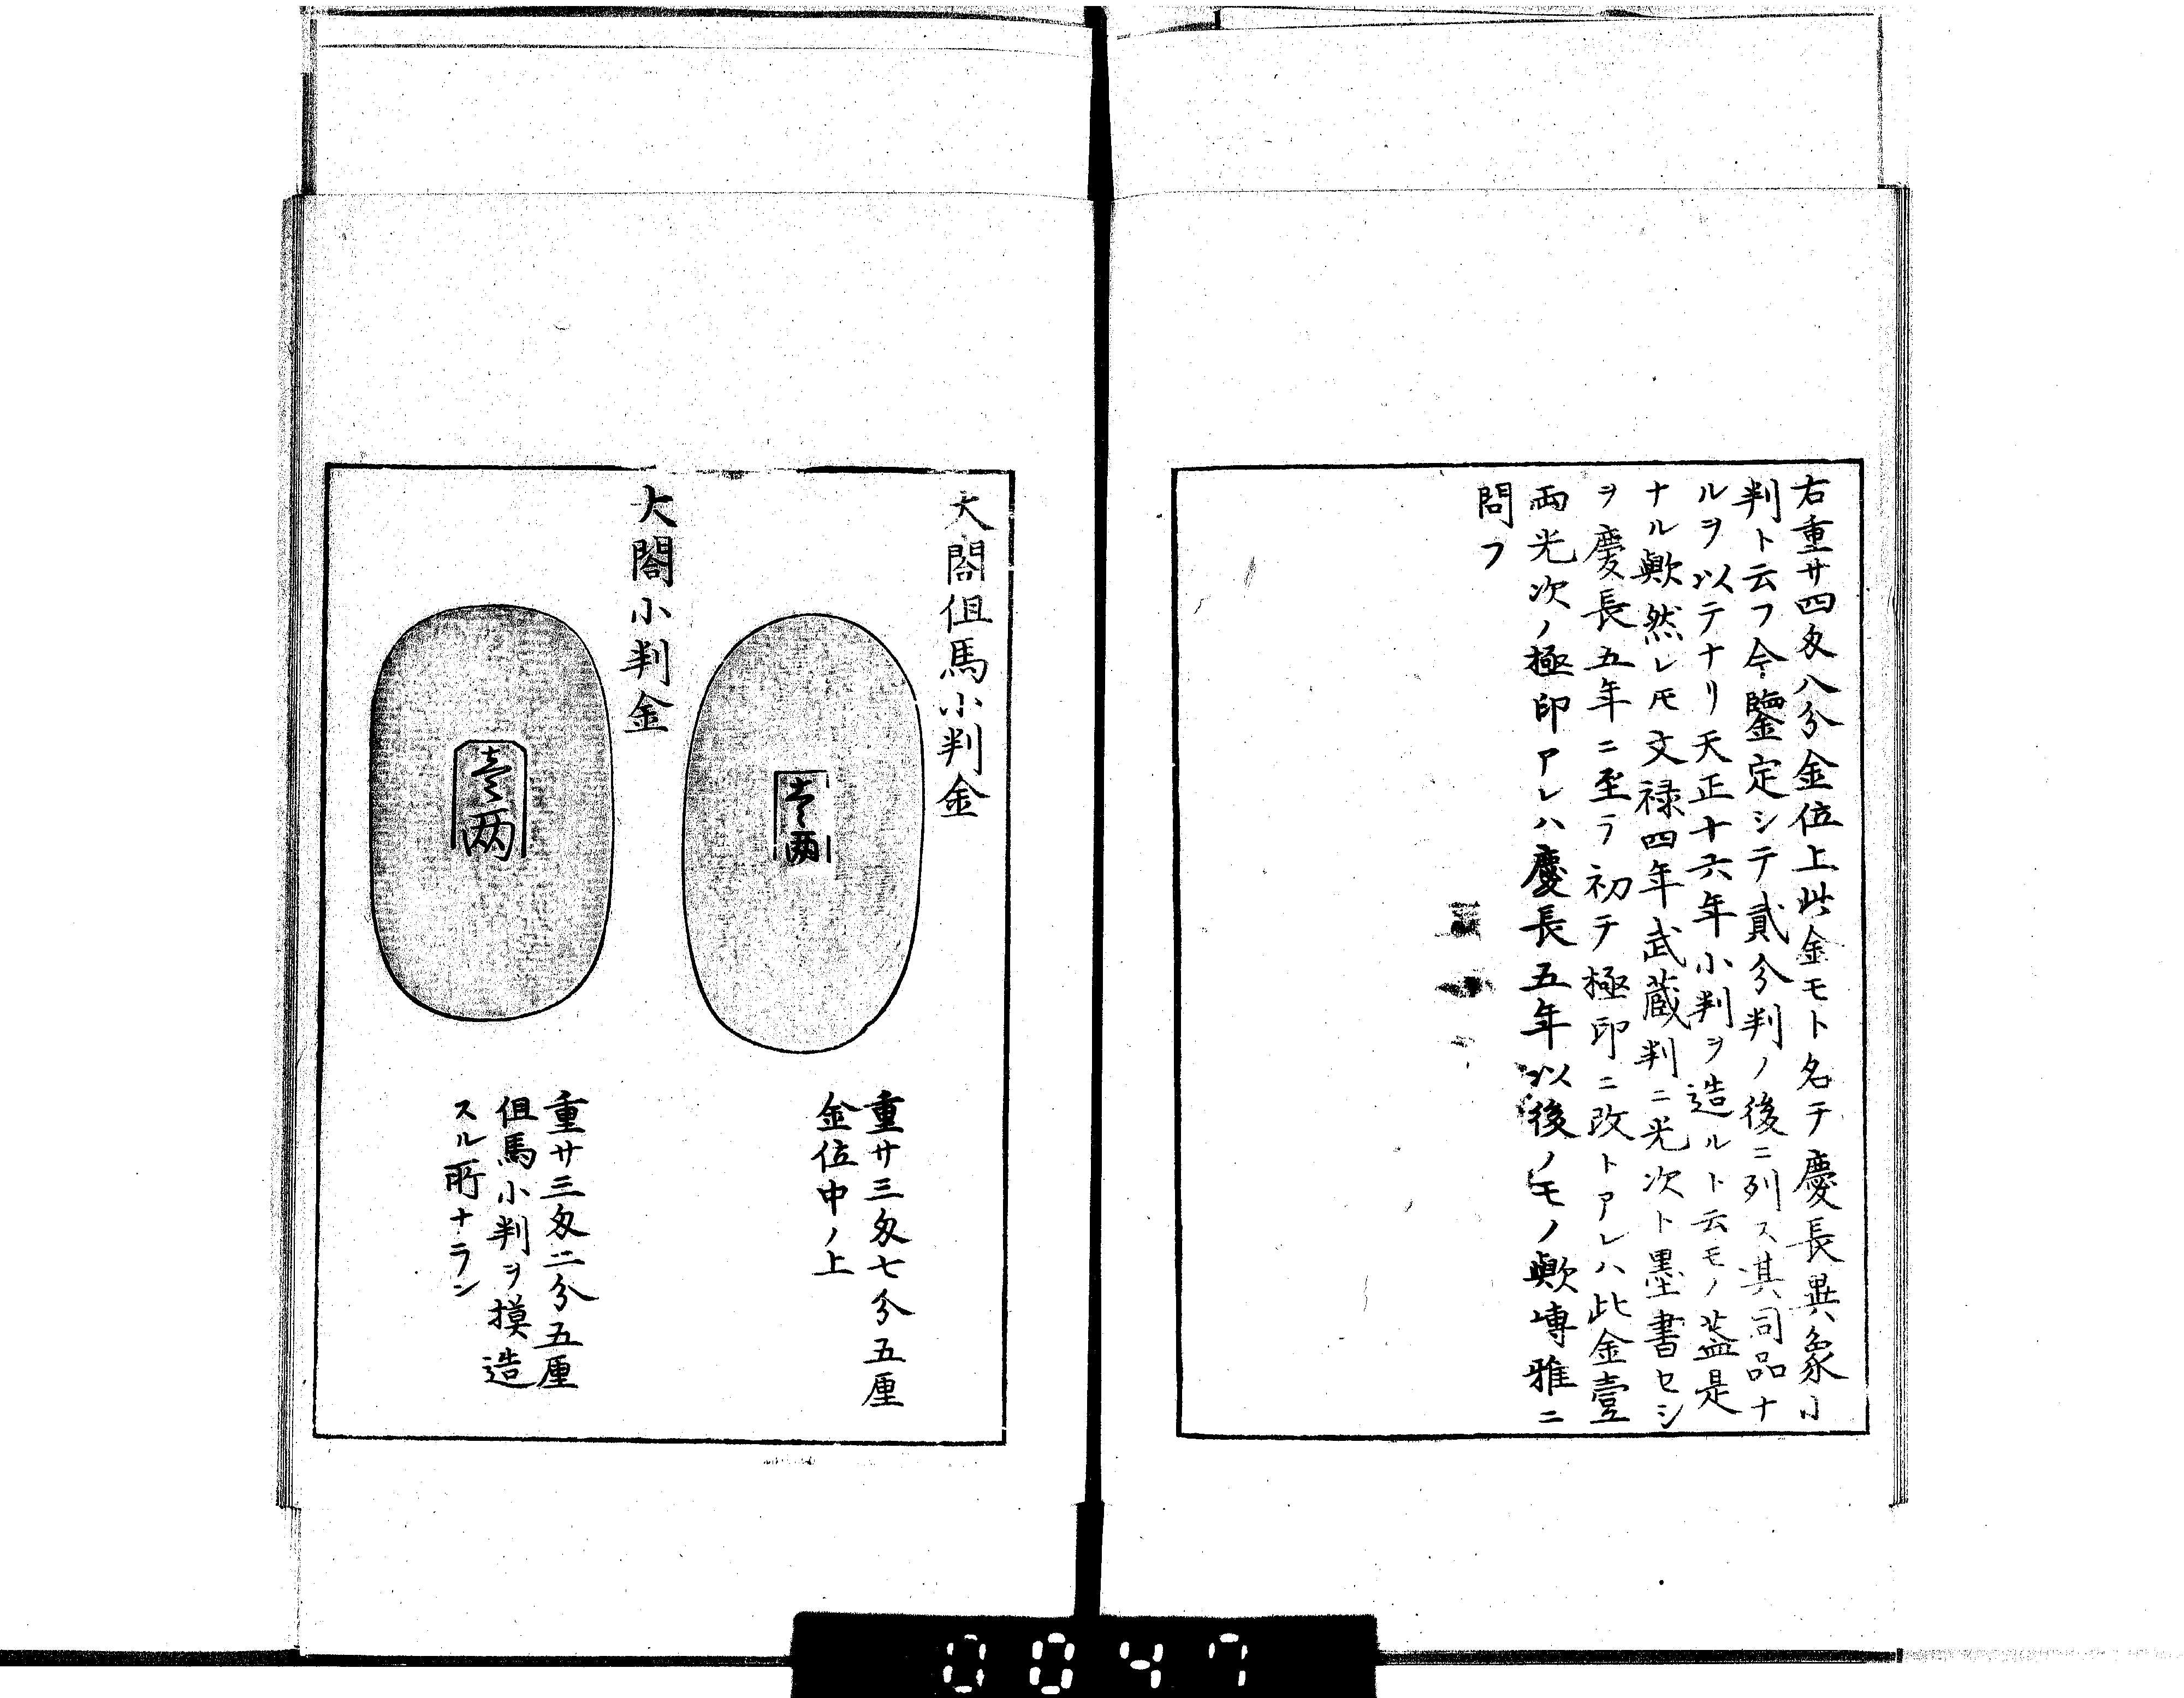 右重廿四匁八分金位上此金モト名テ慶長異象小
判ト云フ今鑒定シテ貳分判ノ後ニ列ス其同品ナ
ルヲ以テナリ天正十六年小判ヲ造ルト云モノ葢是
ナル歟然レ𪜈文禄四年武蔵判ニ光次ト墨書セシ
ヲ慶長五年ニ至ラ初テ極印ニ改トアレハ此金壹
両光次ノ極印アレハ慶長五年以後ノモノ歟博雅ニ
問フ
大閤但馬小判金
壱両
重廿三匁七分五厘
金位中ノ上
大閤小判金
壱两
重廿三匁二分五厘
但馬小判ヲ摸造
スル所ナラン
0047